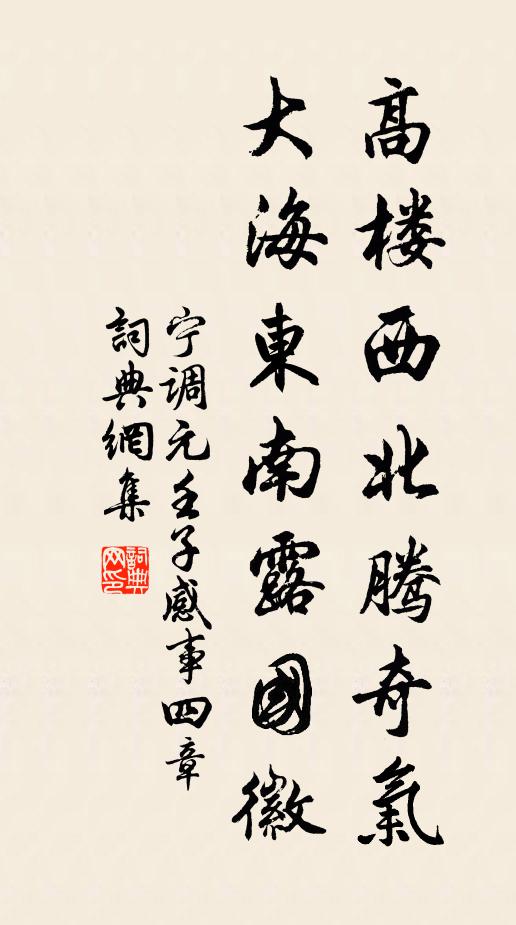 高楼西北腾奇氣
大海東南露國徽
宁调元壬子感事四章
詞典網集
詞典网印